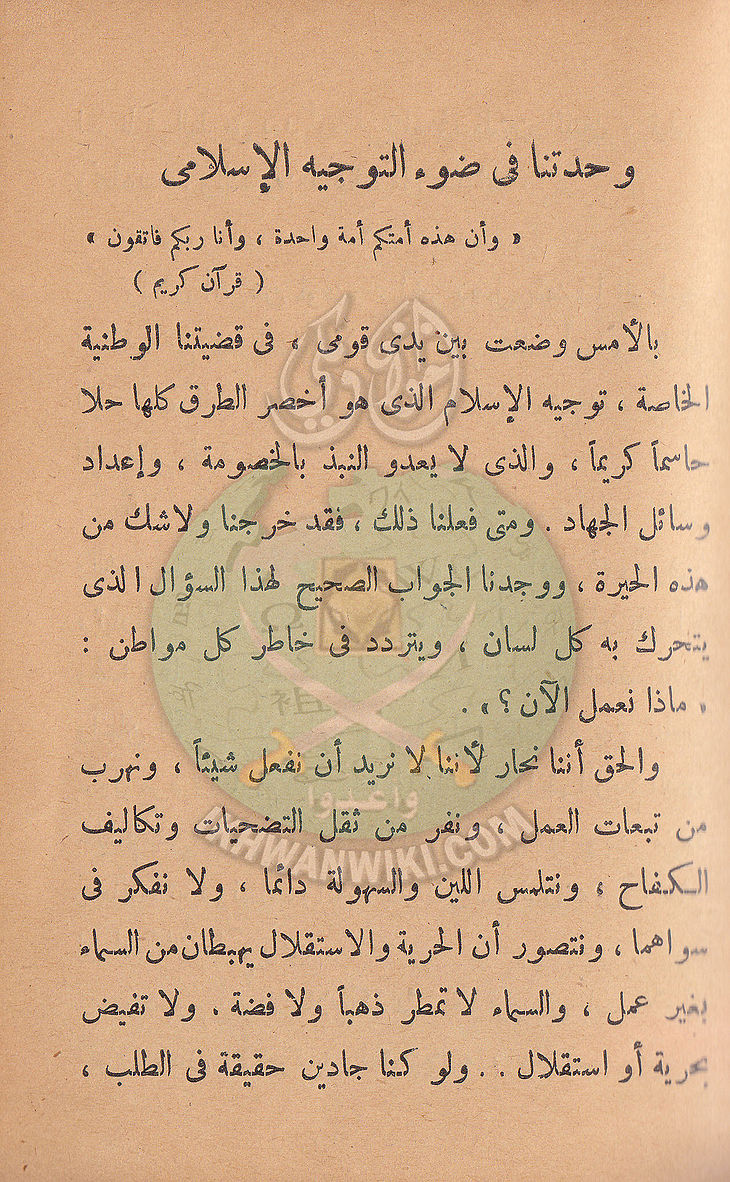 وحدتنا فى ضوء التوجيه الإسلامى
« وأن هذه أمتكم أمة واحدة ، وأنا ربكم فاتقون »
( قرآن كريم )
بالأمس وضعت بين يدى قومى ، فى قضيتنا الوطنية
الخاصة ، توجيه الإسلام الذى هو أخصر الطرق كلها حلا
حاسماً كريماً ، والذى لا يعدو النبذ بالخصومة ، وإعداد
وسائل الجهاد . ومتى فعلنا ذلك ، فقد خرجنا ولاشك من
هذه الحيرة ، ووجدنا الجواب الصحيح لهذا السؤال الذى
يتحرك به كل لسان ، ويتردد فى خاطر كل مواطن :
« ماذا نعمل الآن ؟ » .
والحق أننا نحار لأننا لا نريد أن نفعل شيئاً ، ونهرب
من تبعات العمل ، ونفر من ثقل التضحيات وتكاليف
الكفاح ، ونتلمس اللين والسهولة دائما ، ولا نفكر فى
سواهما ، ونتصور أن الحرية والاستقلال يهبطان من السماء
بغير عمل ، والسماء لا تمطر ذهباً ولا فضة . ولا تفيض
بحرية أو استقلال . . ولو كنا جادين حقيقة فى الطلب ،
وأعدوا
IKHWANWIKI.COM